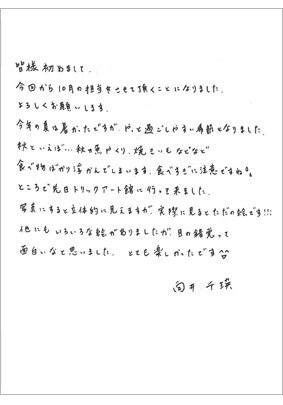 皆様初めまして。
今回から10月の担当をさせて頂くことになりました。
よろしくお願いします。
今年の夏は暑かったですが、やっと過ごしやすい季節となりました。
秋といえば…秋の魚やくり、焼きいもなどなど
食べ物ばかり浮かんでしまいます。食べすぎに注意ですね。
ところで先日トリックアート館に行って来ました。
写真にすると立体的に見えますが、実際に見るとただの絵です!!!
他にもいろいろな絵がありましたが、目の錯覚って
面白いなと思いました。とても楽しかったです^^
向井 千瑛